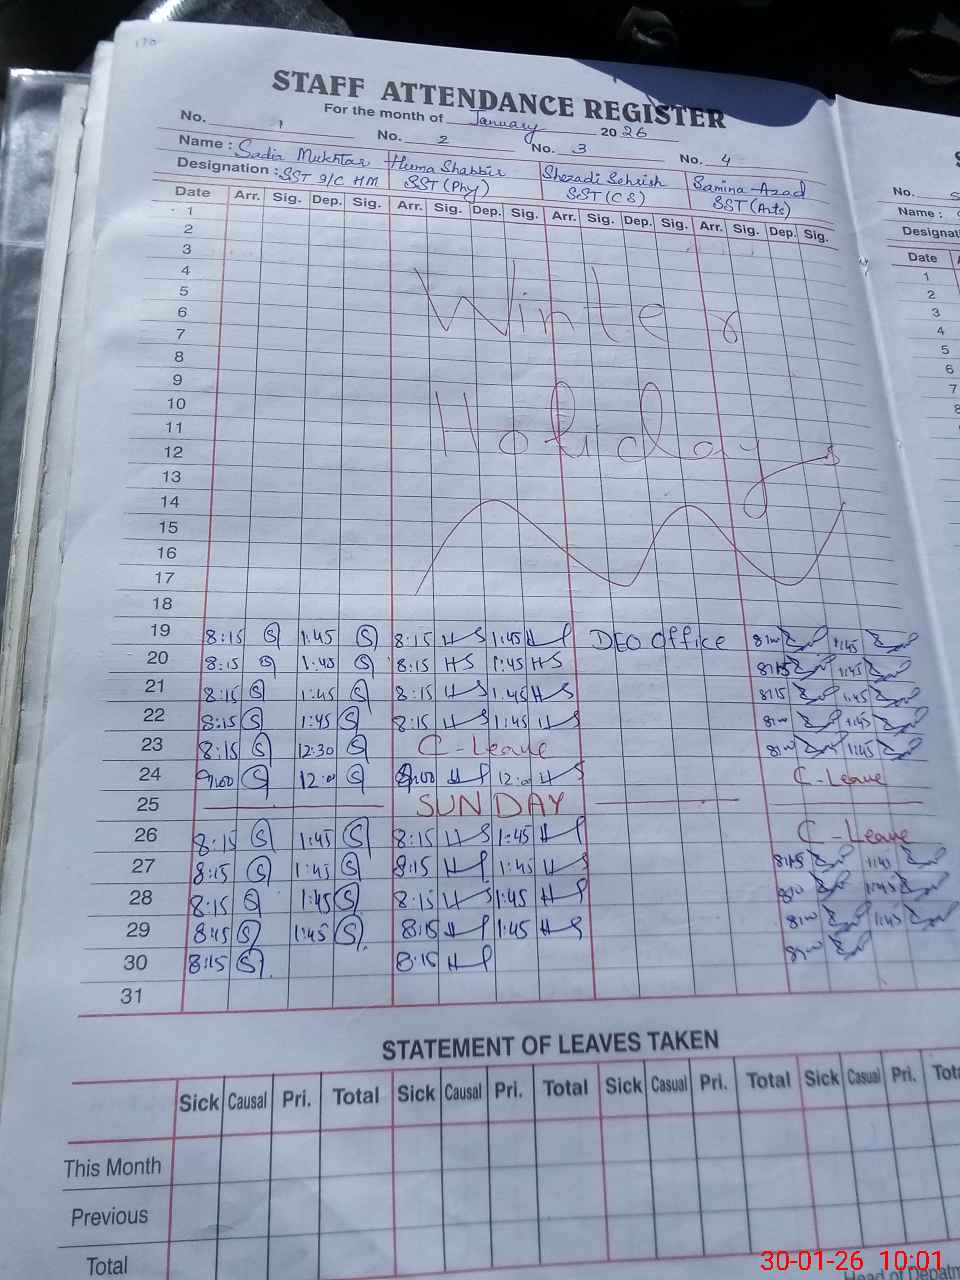 170
STAFF ATTENDANCE REGISTER
For the month of January 2026
No. 1 No. 2 No. 3 No. 4
Name : Sadia Mukhtar Huma Shabbir Shezadi Sehrish Samina Azad
Designation : SST I/C HM SST (Phy) SST (CS) SST (Arts)
Date Arr. Sig. Dep. Sig. Arr. Sig. Dep. Sig. Arr. Sig. Dep. Sig. Arr. Sig. Dep. Sig.
1
2
3
4
5
6
7
8
9
10
11
12
13
14
15
16
17
18
Winter
Holidays
19 8:15 S 1:45 S 8:15 HS 1:45 HS DEO Office 8:00 1:45
20 8:15 S 1:45 S 8:15 HS 1:45 HS 8:15 1:45
21 8:15 S 1:45 S 8:15 HS 1:45 HS 8:15 1:45
22 8:15 S 1:45 S 8:15 HS 1:45 HS 8:00 1:45
23 8:15 S 12:30 S C-Leave 8:00 1:45
24 9:00 S 12:00 S 9:00 HS 12:00 HS C-Leave
25 SUNDAY
26 8:15 S 1:45 S 8:15 HS 1:45 HS C-Leave
27 8:15 S 1:45 S 8:15 HS 1:45 HS 8:15 1:45
28 8:15 S 1:45 S 8:15 HS 1:45 HS 1:45
29 S 1:45 S 8:15 HS 1:45 HS 8:00 1:45
30 8:15 S 8:15 HS 8:00
31
STATEMENT OF LEAVES TAKEN
Sick Causal Pri. Total Sick Causal Pri. Total Sick Casual Pri. Total Sick Casual Pri.
This Month
Previous
Total
No.
Name :
Date
1
2
3
4
5
6
7
30-01-26 10:01